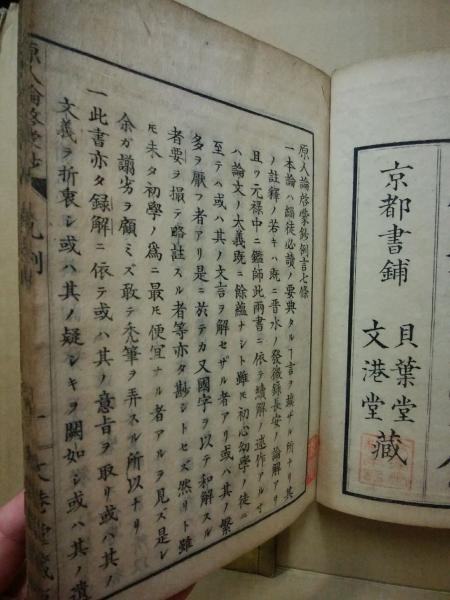 京都書鋪
貝葉堂
文港堂
藏
原人論啓蒙鈔例言七條
一本論ハ緇徒必讀ノ要典タルヿ言ヲ換ザル所ナリ其
ノ註釋ノ若キハ既ニ晋水ノ發微録長安ノ論解アリ
且ツ元禄中ニ鑑師此兩書ニ依テ續解ノ述作アルヿ
ハ論文ノ大義既ニ餘蘊ナシト雖モ初心幼學ノ徒ニ
至テハ或ハ其ノ文言ヲ解セザル者アリ或ハ其ノ繁
多ヲ厭フ者アリ是ニ於テカ又國字ヲ以テ和解スル
者要ヲ撮テ略註スル者等亦タ尠シトセズ然リト雖
𪜈未タ初學ノ爲ニ最モ便宜ナル者アルヲ見ズ是レ
余ガ謭劣ヲ顧ミズ敢テ禿筆ヲ弄スル所以ナリ
一此書亦タ録解ニ依テ或ハ其ノ意㫖ヲ取リ或ハ其ノ
文義ヲ折衷シ或ハ其ノ疑シキヲ闕如シ或ハ其ノ遺
原人論啓蒙鈔
凡例
一
文港堂藏